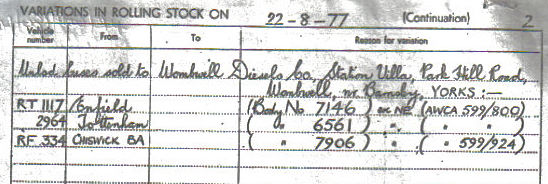 VARIATIONS IN ROLLING STOCK ON 22-8-77 (Continuation) 2
Vehicle number From To Reason for variation
Unlsd buses sold to Wombwell Diesels Co, Station Villa, Park Hill Road,
Wombwell, nr. Barnsley, YORKS :—
RT 1117 Enfield (Body No 7146) ex NE (AWCA 599/800)
2964 Tottenham ( " 6561) " ( " " )
RF 334 CHISWICK BA ( " 7906) " ( " 599/924)